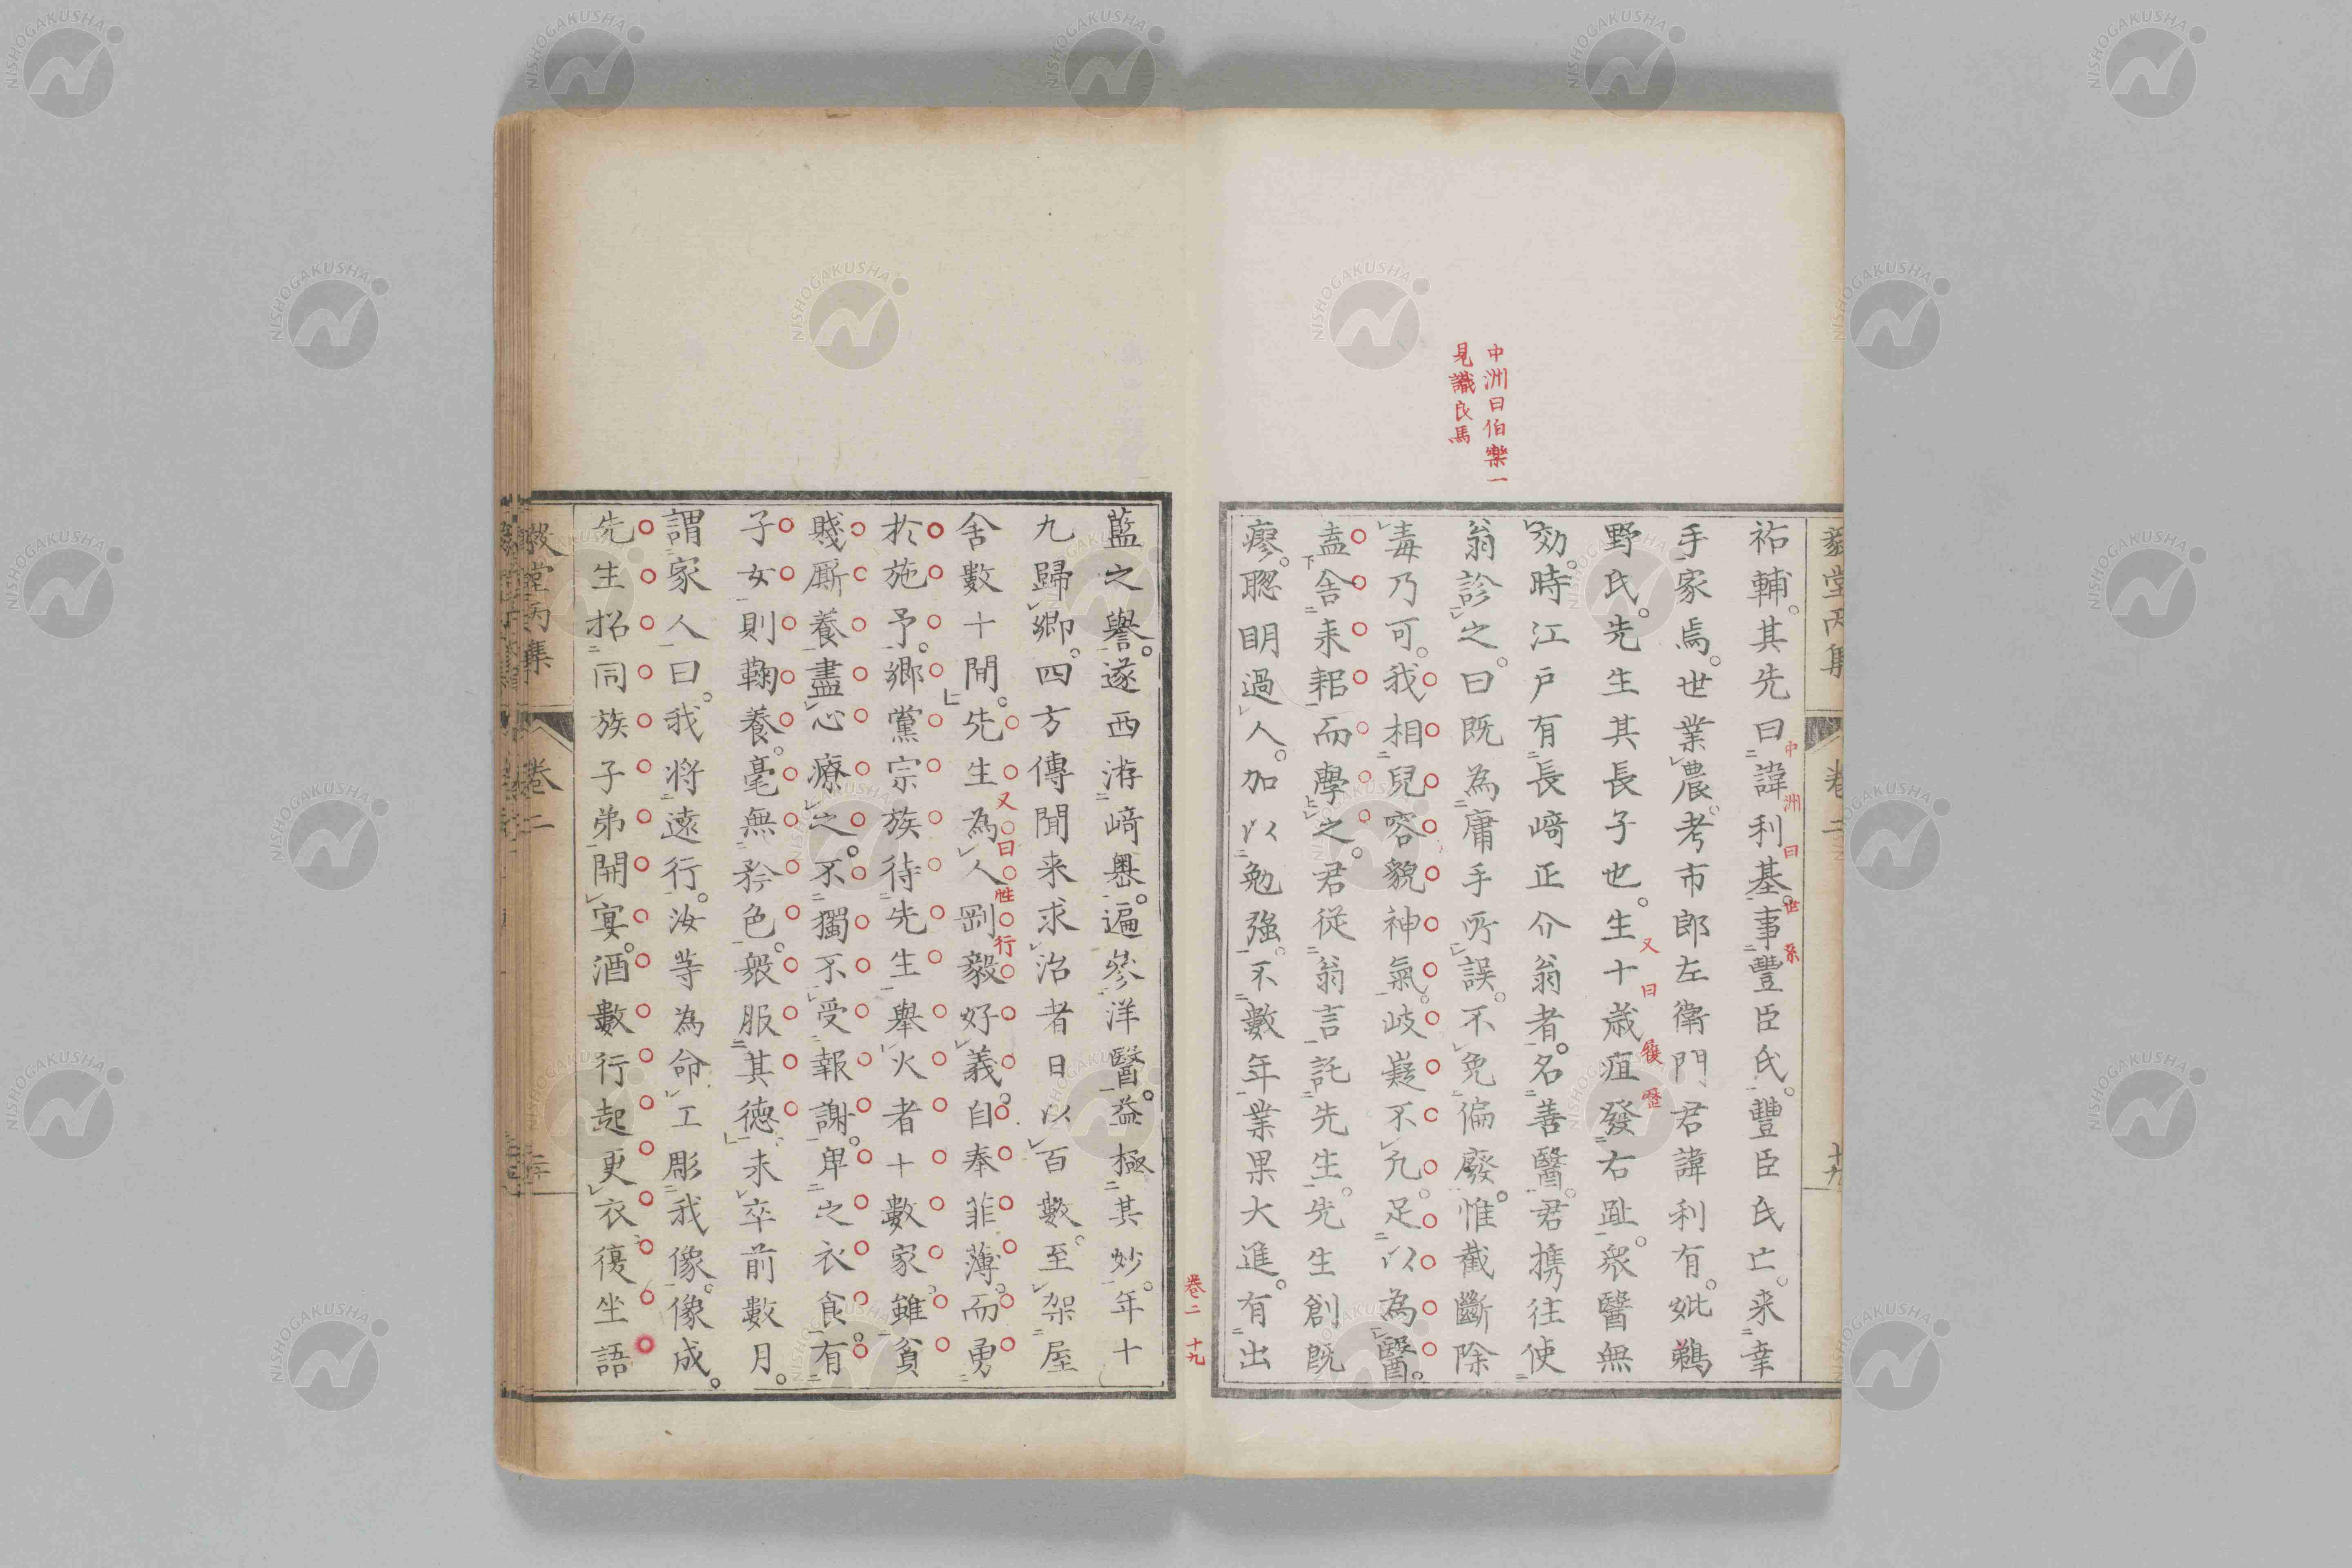 中洲曰伯樂一
見識良馬
毅堂丙集 卷二 十九
祐輔。其先曰諱利基。事豐臣氏。豐臣氏亡。来幸
中洲曰世系
手家焉。世業農。考市郎左衛門君諱利有。妣鵜
野氏。先生其長子也。生十歲疽發右趾。衆醫無
又曰履歷
効。時江戸有長﨑正介翁者。名善醫。君携往使
翁診之。曰既為庸手所誤。不免偏廢。惟截斷除
毒乃可。我相兒容貌神氣。岐嶷不凢。足以為醫。
盍舍耒耜而學之。君從翁言託先生。先生創既
瘳。聡明過人。加以勉強。不數年業果大進。有出
卷二 十九
藍之譽。遂西游﨑奧。遍參洋醫。益極其妙。年十
九歸鄉。四方傳聞来求治者日以百數。至架屋
舍數十間。先生為人剛毅好義。自奉菲薄。而勇
又曰性行
於施予。鄉黨宗族待先生舉火者十數家。雖貧
賤厮養盡心療之。不獨不受報謝。卑之衣食。有
子女則鞠養。毫無矜色。衆服其德。未卒前數月。
謂家人曰。我將遠行。汝等為命工彫我像。像成。
先生招同族子弟開宴。酒數行起更衣。復坐語
毅堂丙集 卷二